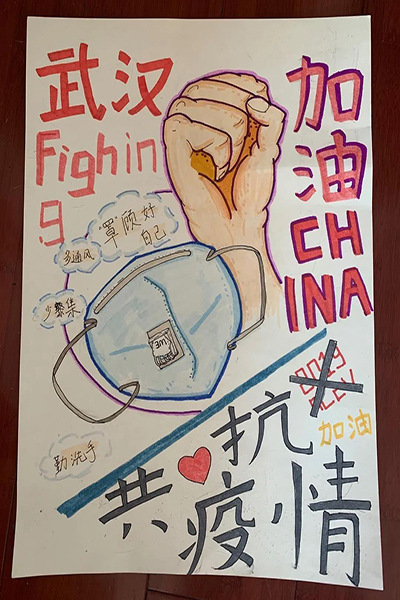 武汉
Fighin
g
加
油
CH
INA
罩顾好
自己
多通风
少聚集
3M
勤洗手
加油
共抗
疫情